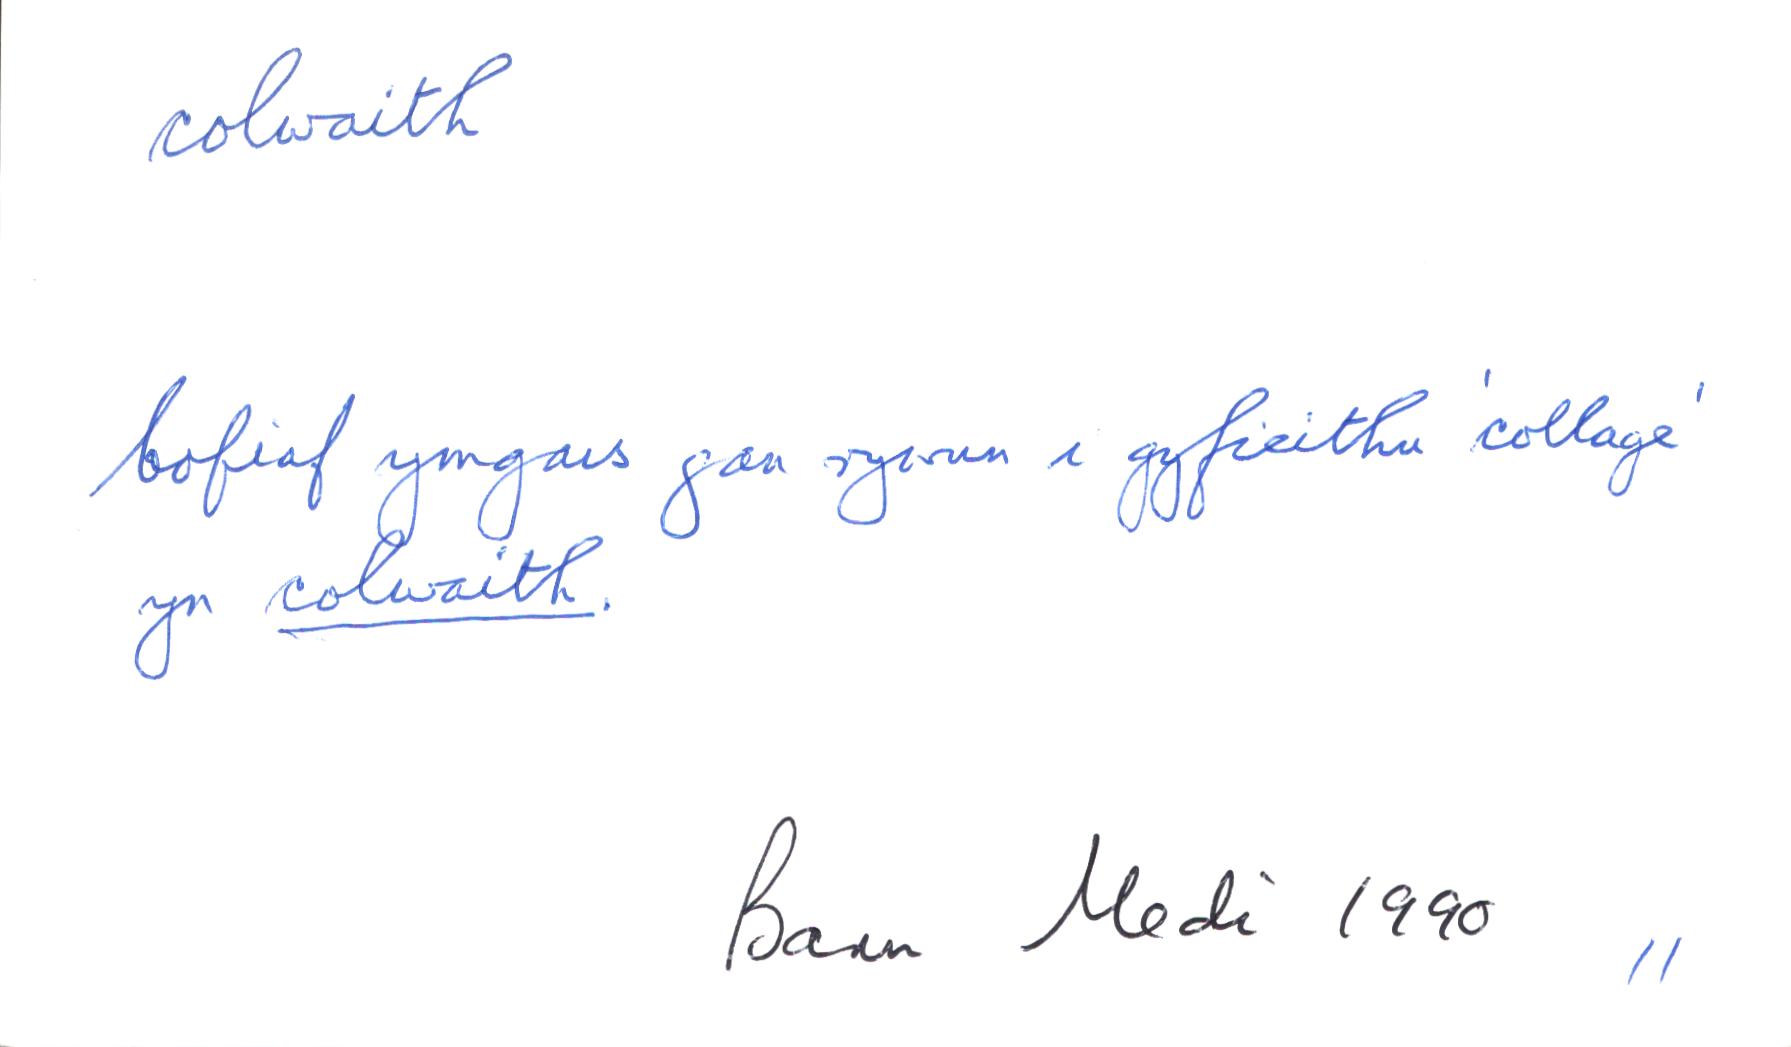 colwaith
cofiaf ymgais gan rywun i gyfieithu 'collage'
yn colwaith.
Barn Medi 1990
11